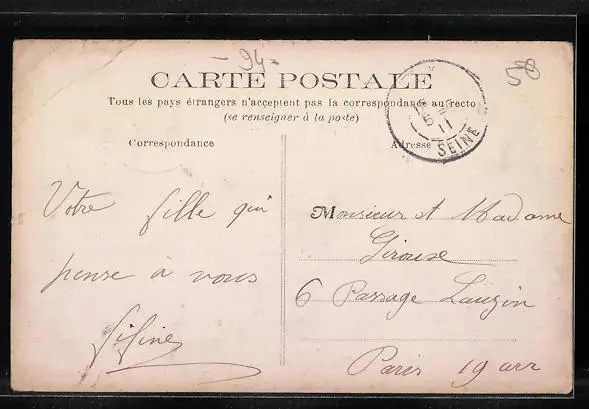 - 94 -
58
CARTE POSTALE
Tous les pays étrangers n'acceptent pas la correspondance au recto
(se renseigner à la poste)
Correspondance
Adresse
11
SEINE
Votre fille qui
pense à vous
Fifine
Monsieur et Madame
Girouse
6 Passage Lauzin
Paris 19 arr